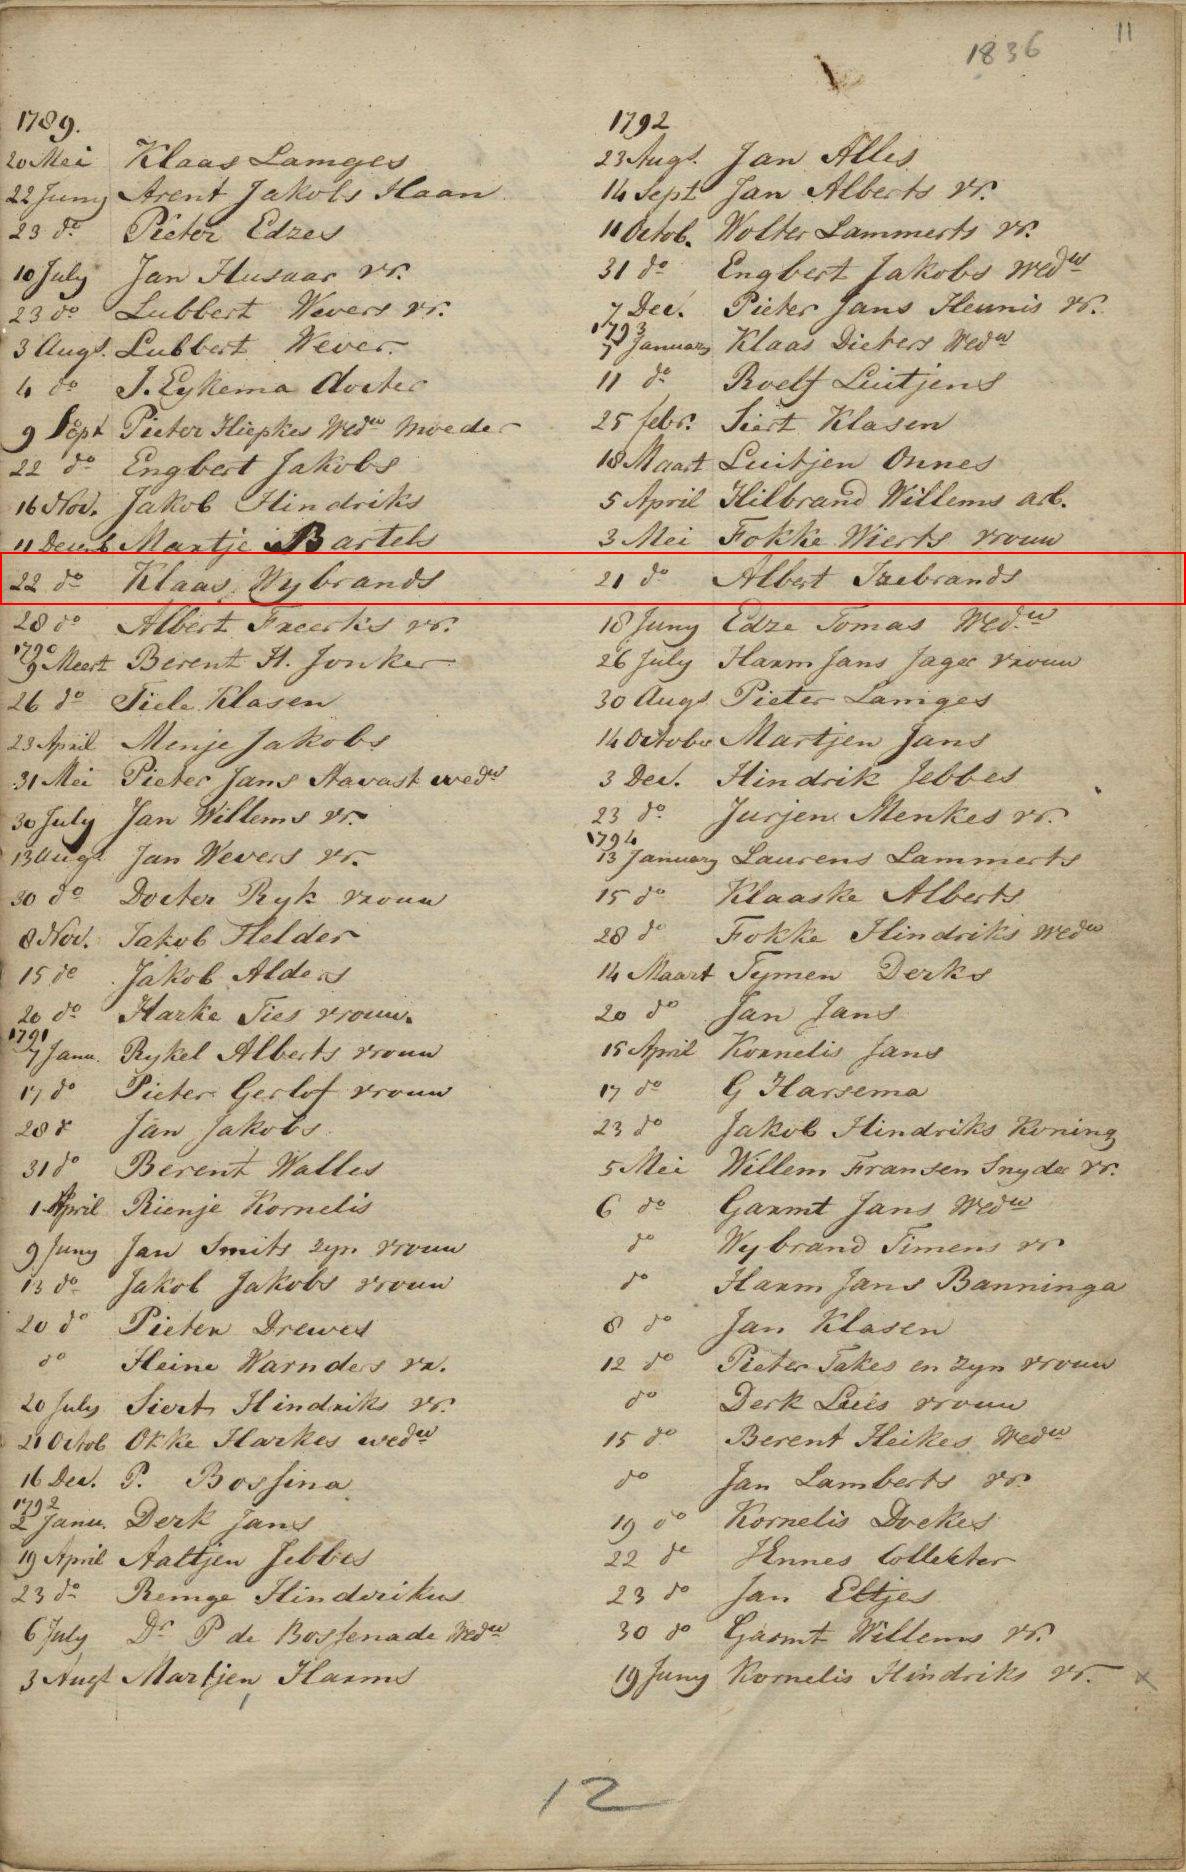 11
1836
1789.
20 Mei Klaas Lamges
22 Juny Arent Jakobs Haan
23 do Pieter Edzes
10 July Jan Husaar vr.
23 do Lubbert Wevers vr.
3 Augs. Lubbert Wever.
4 do J. Eykema docter
9 Sept Pieter Hiepkes Wedw moeder
22 do Engbert Jakobs
16 Nov. Jakob Hindriks
11 Decmb Martje Bartels
22 do Klaas Wybrands
28 do Albert Freerks vr.
1790
9 Meert Berent H. Jonker
26 do Tiele Klasen
23 April Menje Jakobs
31 Mei Pieter Jans Havast wedw
30 July Jan Willems vr.
13 Augs Jan Wevers vr.
30 do Docter Ryk vrouw
8 Nov. Jakob Helder
15 do Jakob Alders
20 do Harke Ties vrouw.
1791
7 Janu. Rykel Alberts vrouw
17 do Pieter Gerlof vrouw
28 d Jan Jakobs
31 do Berent Walles
1 April Rienje Kornelis
9 Juny Jan Smits zyn vrouw
13 do Jakob Jakobs vrouw
20 do Pieter Drewes
do Heine Warnders vr.
20 July Siert Hindriks vr.
21 Octob Okke Harkes wedw
16 Dec. P. Bossina
1792
2 Janu. Derk Jans
19 April Aaltjen Jebbes
23 do Remge Hinderikus
6 July Dr P de Bossenade Wedw
3 Augt Martjen Harms
1792
23 Augs. Jan Alles
14 Sept Jan Alberts vr.
11 Octob. Wolter Lammerts vr.
31 do Engbert Jakobs Wedw
7 Dec. Pieter Jans Heunis vr.
1793
7 January Klaas Dieters Wedw
11 do Roelf Luitjens
25 febr. Siert Klasen
18 Maart Luitjen Onnes
5 April Hilbrand Willems arb.
3 Mei Fokke Wierts vrouw
21 do Albert Izebrands
18 Juny Edze Tomas Wedw
26 July Harm Jans Jager vrouw
30 Augs Pieter Lamges
14 October Martjen Jans
3 Dec. Hindrik Jebbes
23 do Jurjen Menkes vr.
1794
13 January Laurens Lammerts
15 do Klaaske Alberts
28 do Fokke Hindriks Wedw
14 Maart Tymen Derks
20 do Jan Jans
15 April Kornelis Jans
17 do G Harsema
23 do Jakob Hindriks Koning
5 Mei Willem Fransen Snyder vr.
6 do Garmt Jans Wedw
do Wybrand Timens vr
do Harm Jans Banninga
8 do Jan Klasen
12 do Pieter Takes en zyn vrouw
do Derk Luies vrouw
15 do Berent Heikes Wedw
do Jan Lamberts vr.
19 do Kornelis Doekes
22 do Hennes Collekter
23 do Jan Eltjes
30 do Garmt Willems vr.
19 Juny Kornelis Hindriks vr. x
12